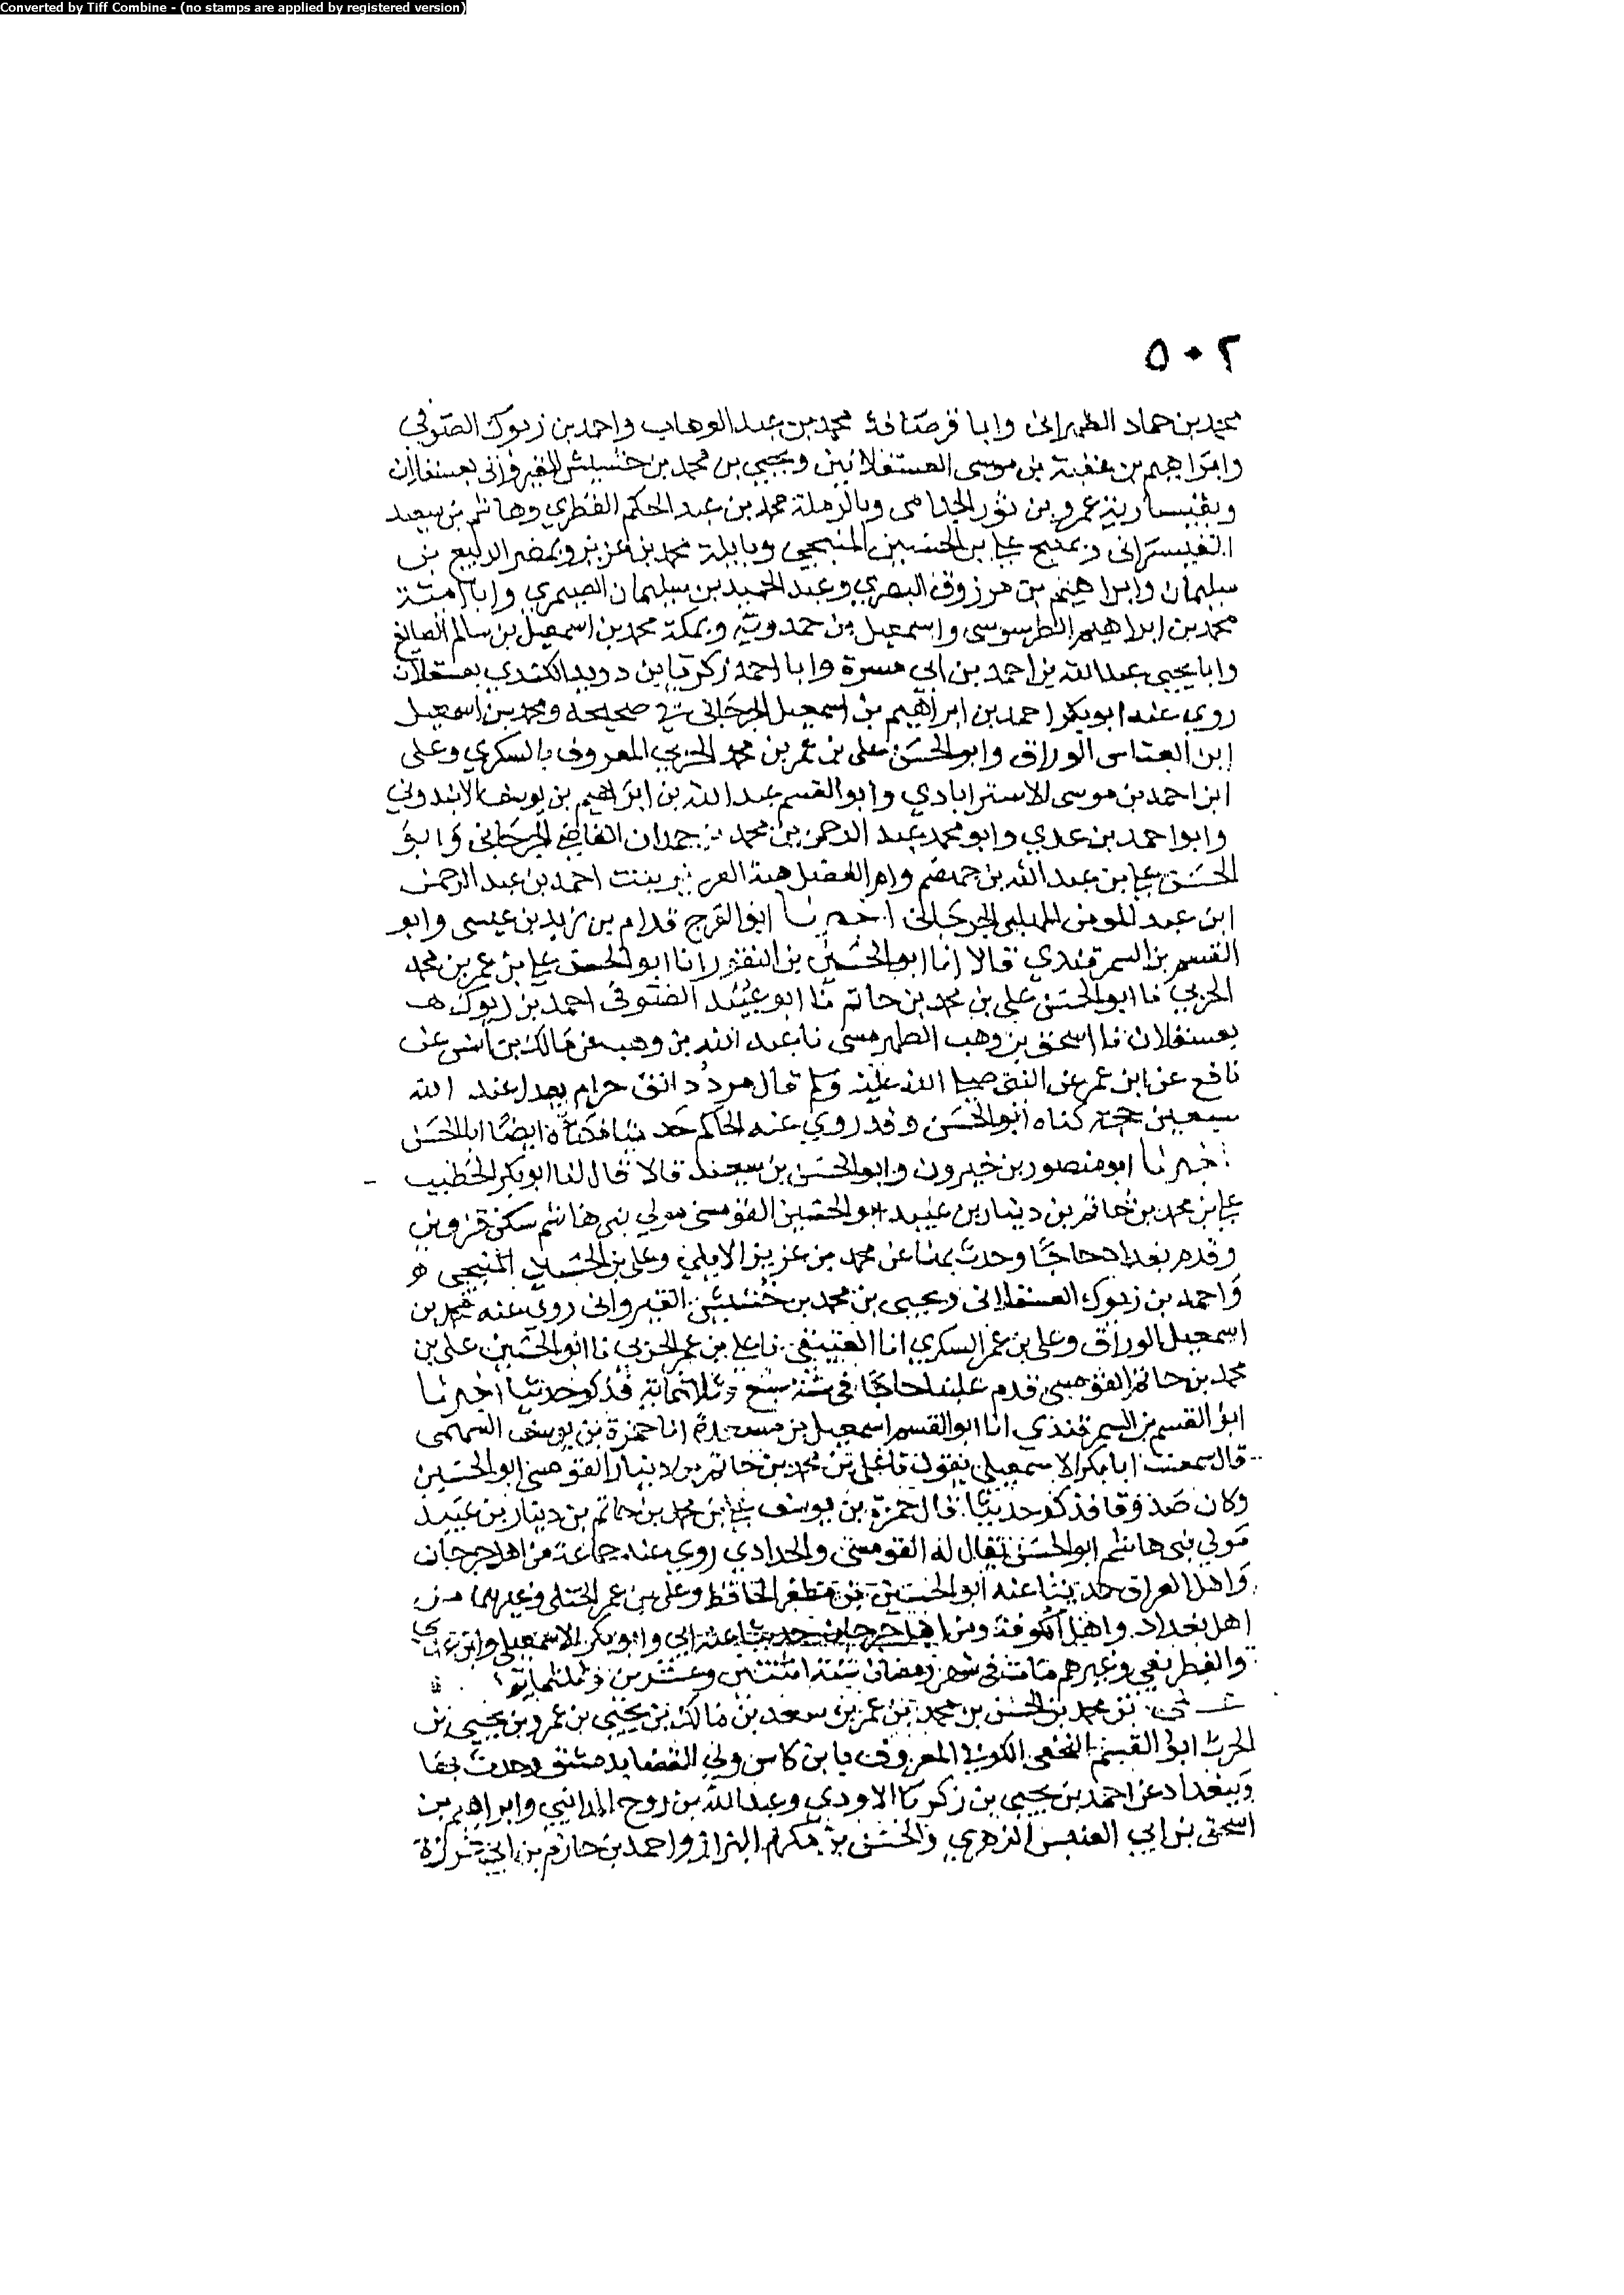 Converted by Tiff Combine - (no stamps are applied by registered version)
٥٠٢
محمد بن حماد الطهرانى وابا قرصافة محمد بن عبد الوهاب واحمد بن زبوك الصوفي
وابراهيم بن عقبة بن موسى العسقلانيين ويحيى بن محمد بن خشيش القيروانى بعسقلان
وبقيسارية عمرو بن ثور الجذامى وبالرملة محمد بن عبد الحكم القطري وهاشم بن سعيد
القيسرانى وبمنبج علي بن الحسين المنبجي وبايلة محمد بن عزيز وبمصر الربيع بن
سليمان وابراهيم بن مرزوق البصري وعبد الحميد بن سليمان الصيمري وابا امية
محمد بن ابراهيم الطرسوسى واسمعيل بن حمدويه وبمكة محمد بن اسمعيل بن سالم الصايغ
وابا يحيى عبد الله بن احمد بن ابي مسرة وابا احمد زكريا بن دويد الكندي بعسقلان
روى عنه ابو بكر احمد بن ابراهيم بن اسمعيل الجرجانى في صحيحه ومحمد بن اسمعيل
ابن العباس الوراق وابو الحسن على بن عمر بن محمد الحربي المعروف بالسكري وعلى
ابن احمد بن موسى الاسترابادي وابو القسم عبد الله بن ابراهيم بن يوسف الابندوني
وابو احمد بن عدي وابو محمد عبد الرحمن بن محمد بن حمدان القاضي الجرجانى وابو
الحسن علي بن عبد الله بن جهضم وام الفضل هبة العزيز بنت احمد بن عبد الرحمن
ابن عبد المومن المهلبي الجرجانى اخبرنا ابو الفرج قدام بن زيد بن عيسى وابو
القسم بن السمرقندي قالا انا ابو الحسين بن النقور انا ابو الحسن علي بن عمر بن محمد
الحربي نا ابو الحسن علي بن محمد بن حاتم نا ابو عبيد الصوفي احمد بن زبوك
بعسقلان نا اسحق بن وهب الطهرمسى نا عبد الله بن وهب عن مالك بن انس عن
نافع عن ابن عمر عن النبي صلى الله عليه وسلم قال مرد دانق حرام يعدل عند الله
سبعين حجة كناه ابو الحسن وقد روي عنه الحاكم حديثا فكناه ايضا ابا الحسن
اخبرنا ابو منصور بن خيرون وابو الحسن بن سعيد قالا قال لنا ابو بكر الخطيب
علي بن محمد بن حاتم بن دينار بن عبيد ابو الحسين القومسى مولي بنى هاشم سكن قزوين
وقدم بغداد حاجًا وحدث بها عن محمد بن عزيز الايلي وعلى بن الحسين المنبجى
واحمد بن زبوك العسقلانى ويحيى بن محمد بن خشيش القيروانى روى عنه محمد بن
اسمعيل الوراق وعلى بن عمر السكري انا العتيقي نا علي بن عمر الحربي نا ابو الحسين على بن
محمد بن حاتم القومسى قدم علينا حاجًا فى سنة سبع وثلاثماية فذكر حديثا اخبرنا
ابو القسم بن السمرقندي انا ابو القسم اسمعيل بن مسعدة انا حمزة بن يوسف السهمى
قال سمعت ابا بكر الاسمعيلي يقول نا على بن محمد بن حاتم بن دينار القومسى ابو الحسين
وكان صدوقا فذكر حديثا قال حمزة بن يوسف علي بن محمد بن حاتم بن دينار بن عبيد
مولي بني هاشم ابو الحسن يقال له القومسى والحدادي روي عنه جماعة من اهل جرجان
واهل العراق حدثنا عنه ابو الحسين بن مظفر الحافظ وعلى بن عمر الختلي وغيرهما من
اهل بغداد واهل الكوفة ومن اهل جرجان حدثنا عنه ابي وابو بكر الاسمعيلي وابن عدي
والغطريفي وغيرهم مات فى شهر رمضان سنة اثنتين وعشرين وثلثماية
علي بن محمد بن الحسن بن محمد بن عمر بن سعد بن مالك بن يحيى بن عمرو بن يحيى بن
الحرث ابو القسم النخعى الكوفي المعروف بابن كاس ولي القضا بدمشق وحدث بها
وببغداد عن احمد بن يحيى بن زكريا الاودي وعبد الله بن روح المدائني وابراهيم بن
اسحق بن ابي العنبس الزهري والحسن بن مكرم البزاز واحمد بن حازم بن ابي غرزة